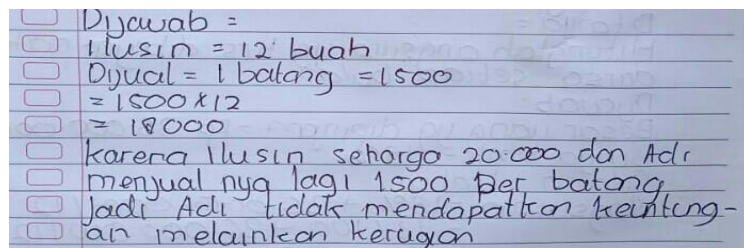 Dijawab =
1 lusin = 12 buah
Dijual = 1 batang = 1500
= 1500 x 12
= 18000
karena 1 lusin seharga 20.000 dan Adi
menjual nya lagi 1500 per batang
Jadi Adi tidak mendapatkan keuntung-
an melainkan kerugian